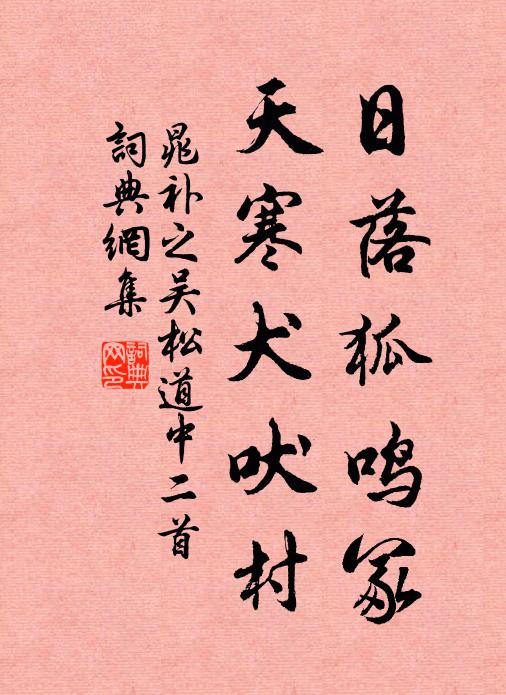 日落狐鸣冢
天寒犬吠村
晁补之吴松道中二首
詞典網集
詞典
网印